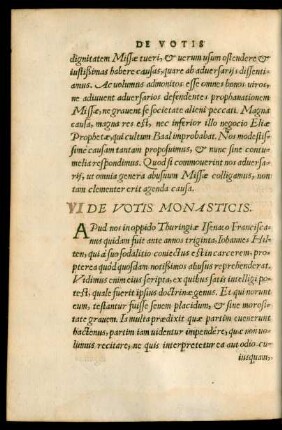 DE VOTIS
dignitatem Missæ tueri, & uerum usum ostendere &
iustißimas habere causas, quare ab aduersarijs dissenti-
amus. Ac uolumus admonitos esse omnes bonos uiros,
ne adiuuent aduersarios defendentes prophanationem
Missæ, ne grauent se societate alieni peccati. Magna
causa, magna res est, nec inferior illo negocio Eliæ
Prophetæ, qui cultum Baal improbabat. Nos modestiſ-
sime causam tantam proposuimus, & nunc sine contu-
melia respondimus. Quod si commouerint nos aduersa-
rij, ut omnia genera abusuum Missæ colligamus, non
tam clementer erit agenda causa.
VI DE VOTIS MONASTICIS.
APud nos in oppido Thuringiæ Isenaco Francisca-
nus quidam fuit ante annos triginta, Iohannes Hil-
ten, qui à suo sodalitio coniectus est in carcerem, pro-
pterea quòd quosdam notißimos abusus reprehenderat.
Vidimus enim eius scripta, ex quibus satis intelligi po-
test, quale fuerit ipsius doctrinæ genus. Et qui norunt
eum, testantur fuisse senem placidum, & sine morosi-
tate grauem. Is multa prædixit quæ partim euenerunt
hactenus, partim iam uidentur impendere, quæ non uo-
lumus recitare, ne quis interpretetur ea aut odio cu-
iusquam,